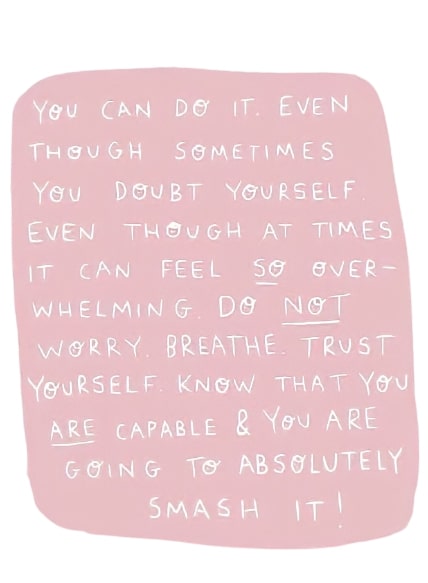 YOU CAN DO IT. EVEN
THOUGH SOMETIMES
YOU DOUBT YOURSELF.
EVEN THOUGH AT TIMES
IT CAN FEEL SO OVER-
WHELMING. DO NOT
WORRY. BREATHE. TRUST
YOURSELF. KNOW THAT YOU
ARE CAPABLE & YOU ARE
GOING TO ABSOLUTELY
SMASH IT!